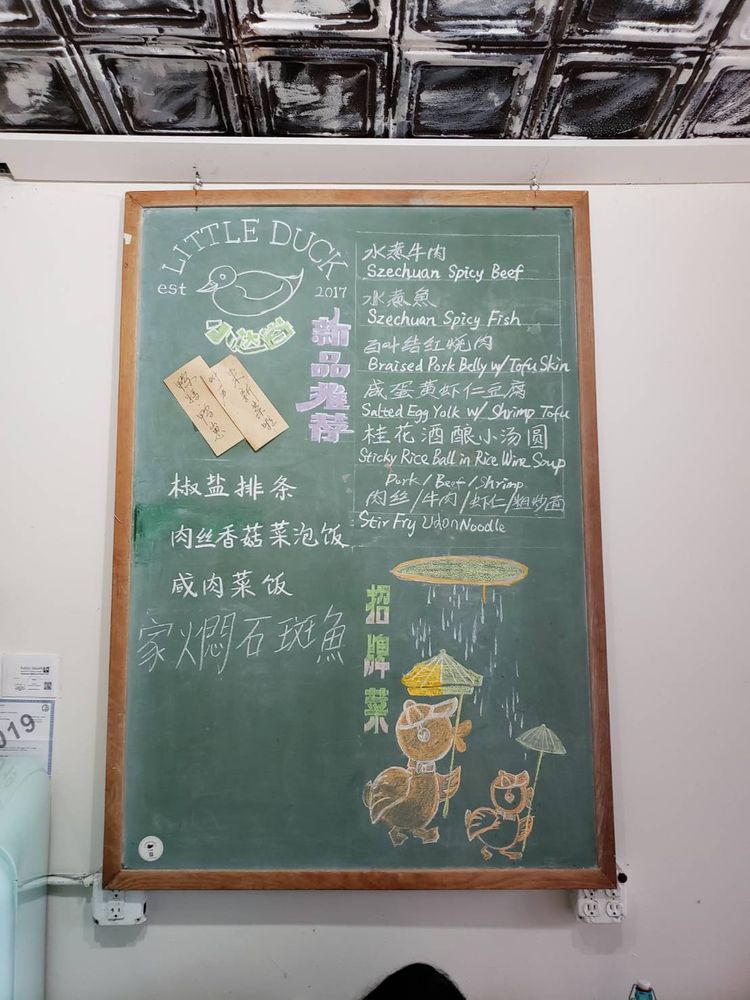 LITTLE DUCK
est
2017
新品推荐
椒盐排条
肉丝香菇菜泡饭
咸肉菜饭
家火焖石斑魚
水煮牛肉
Szechuan Spicy Beef
水煮魚
Szechuan Spicy Fish
百叶结红烧肉
Braised Pork Belly w/ Tofu Skin
咸蛋黄虾仁豆腐
Salted Egg Yolk w/ Shrimp Tofu
桂花酒酿小汤圆
Sticky Rice Ball in Rice Wine Soup
Pork / Beef / Shrimp
肉丝/牛肉/虾仁/粗炒面
Stir Fry Udon Noodle
招牌菜